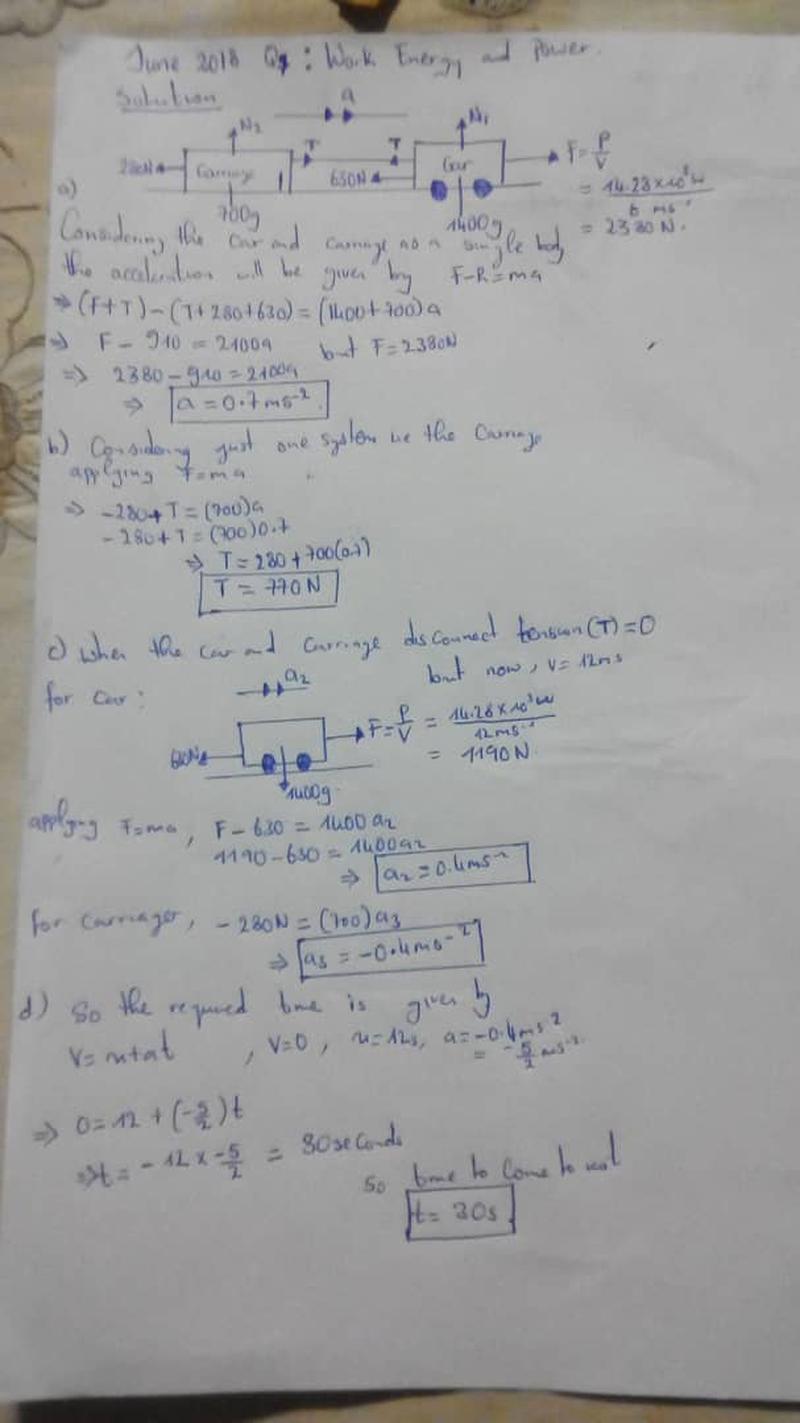 June 2018 Q7: Work Energy and Power.
Solution
a
N2
N1
T
T
F=P/V
280N
Carriage
630N
Car
= 14.28×10³W / 6 ms⁻¹
a)
700g
1400g
= 2380N.
Considering the car and carriage as a single body
the acceleration will be given by F-R=ma
⇒ (F+T)-(T+280+630)=(1400+700)a
⇒ F - 910 = 2100a but F=2380N
⇒ 2380-910=2100a
⇒ a=0.7ms⁻²
b) Considering just one system ie the Carriage
applying F=ma
⇒ -280+T=(700)a
-280+T=(700)0.7
⇒ T=280+700(0.7)
T=770N
c) When the car and Carriage disconnect tension(T)=0
but now, V=12ms
for Car:
a2
F=P/V = 14.28×10³W / 12ms⁻¹
= 1190N
1400g
applying F=ma, F-630=1400a2
1190-630=1400a2
⇒ a2=0.4ms⁻²
for Carriager, -280N=(700)a3
⇒ a3=-0.4ms⁻²
d) So the required time is given by
V=u+at, V=0, u=12s, a=-0.4ms²
= -5/2 ms⁻²
⇒ 0=12+(-5/2)t
⇒t= -12×-5/2 = 30seconds
So time to Come to rest
t=30s